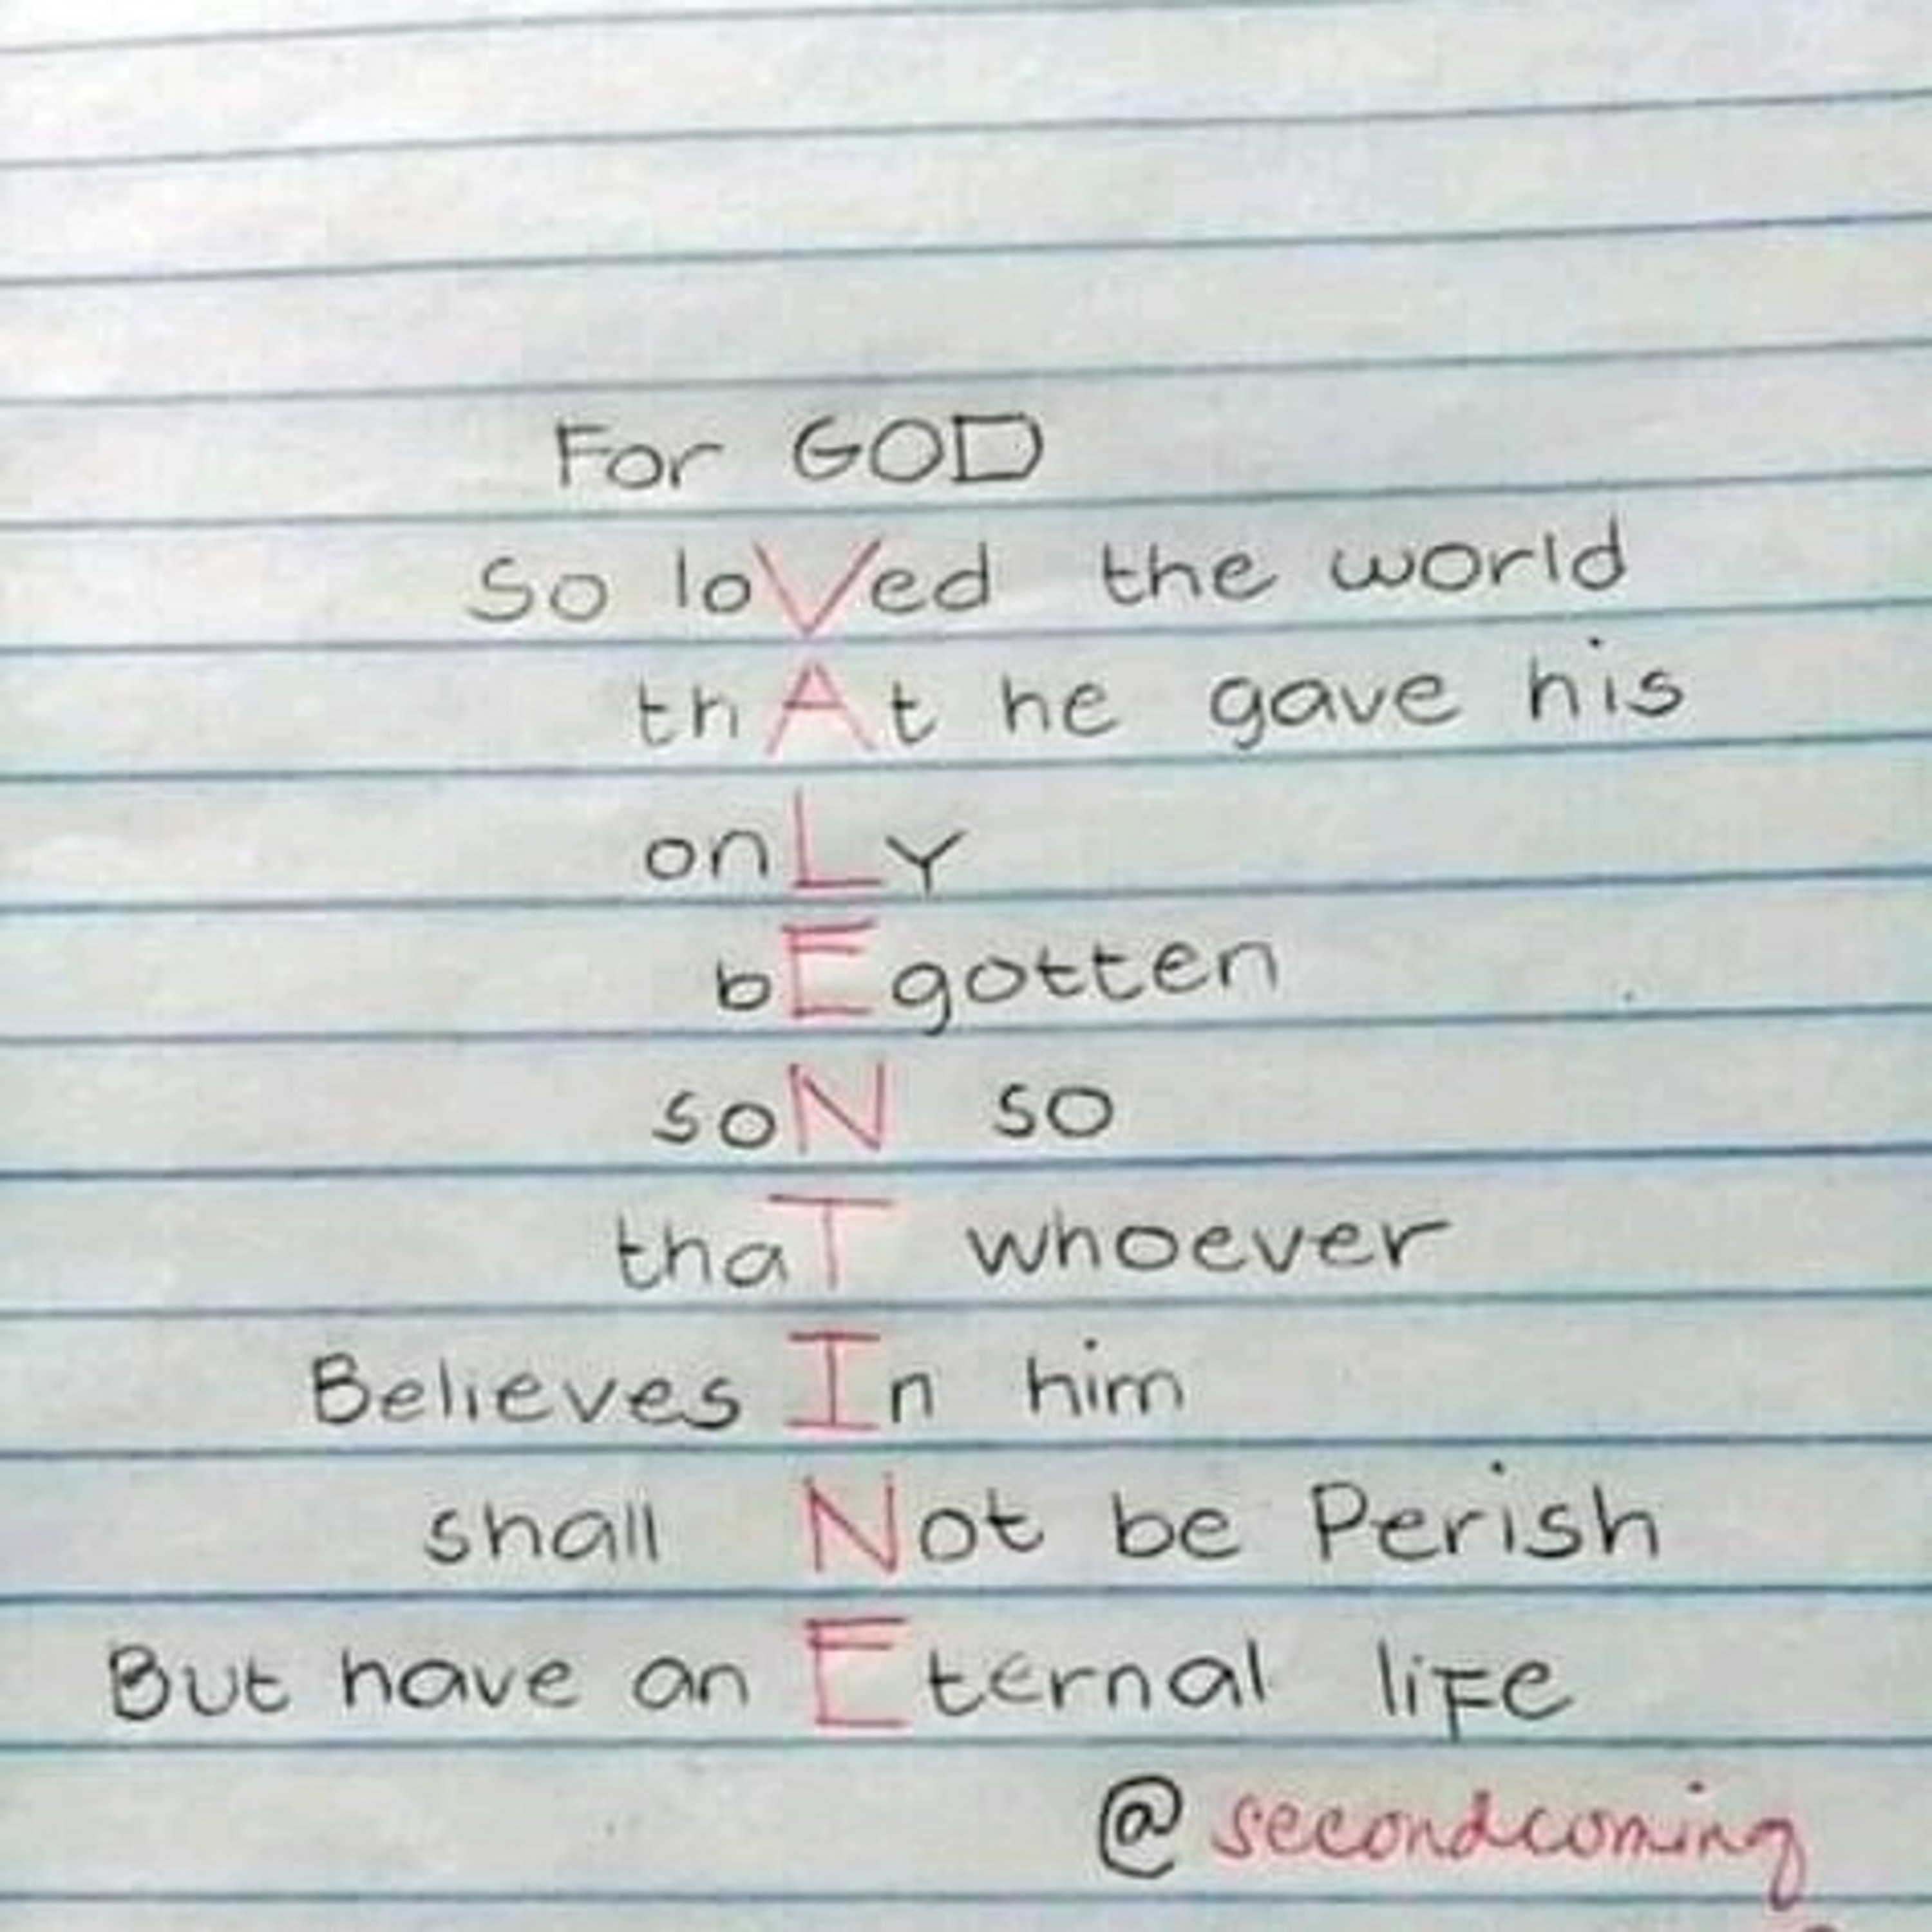 For GOD
So loVed the world
thAt he gave his
onLy
bEgotten
soN so
thaT whoever
Believes In him
shall Not be Perish
But have an Eternal liFe
@secondcoming